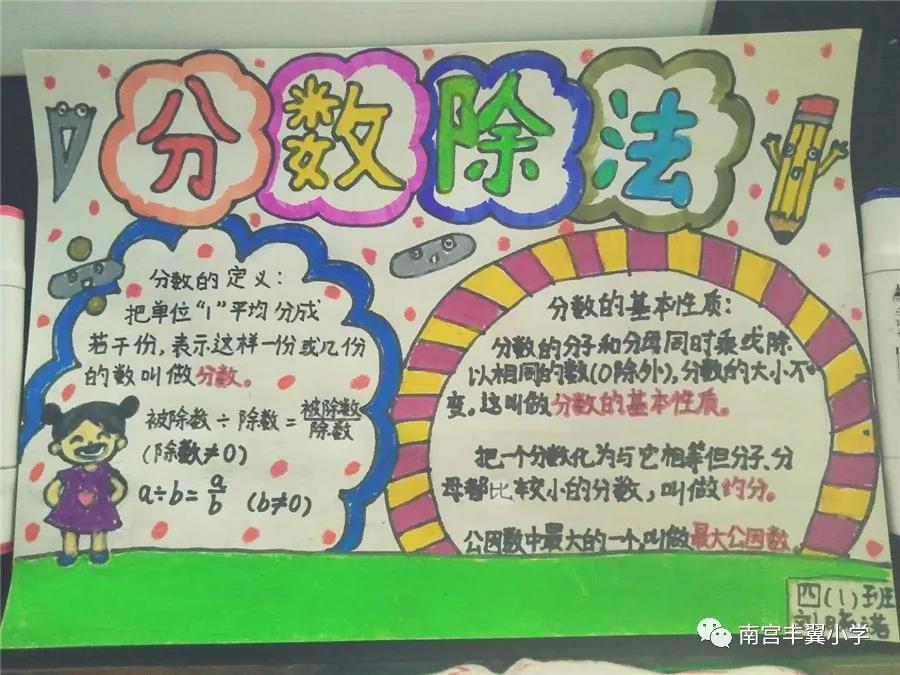 分数除法
分数的定义：
把单位“1”平均分成
若干份，表示这样一份或几份
的数叫做分数。
被除数÷除数=被除数/除数
(除数≠0)
a÷b=a/b (b≠0)
分数的基本性质：
分数的分子和分母同时乘或除
以相同的数(0除外)，分数的大小不
变。这叫做分数的基本性质。
把一个分数化为与它相等但分子、分
母都比较小的分数，叫做约分。
公因数中最大的一个，叫做最大公因数。
四(1)班
南宫丰翼小学